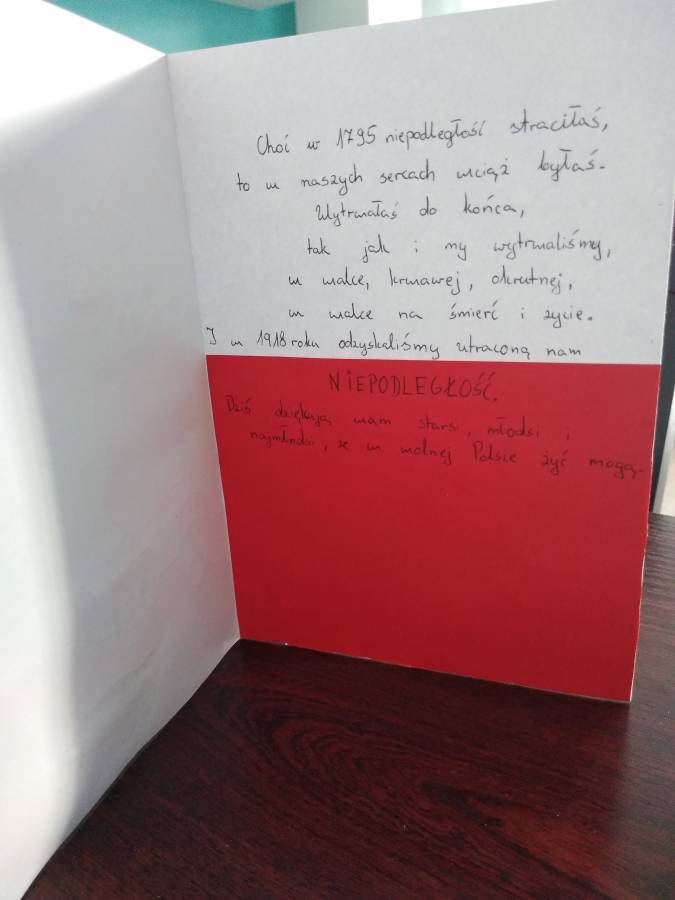 Choć w 1795 niepodległość straciłaś,
to w naszych sercach wciąż byłaś.
Wytrwałaś do końca,
tak jak i my wytrwaliśmy,
w walce, krwawej, okrutnej,
w walce na śmierć i życie.
I w 1918 roku odzyskaliśmy utraconą nam
NIEPODLEGŁOŚĆ.
Dziś dziękują wam starsi, młodsi i
najmłodsi, że w wolnej Polsce żyć mogą.